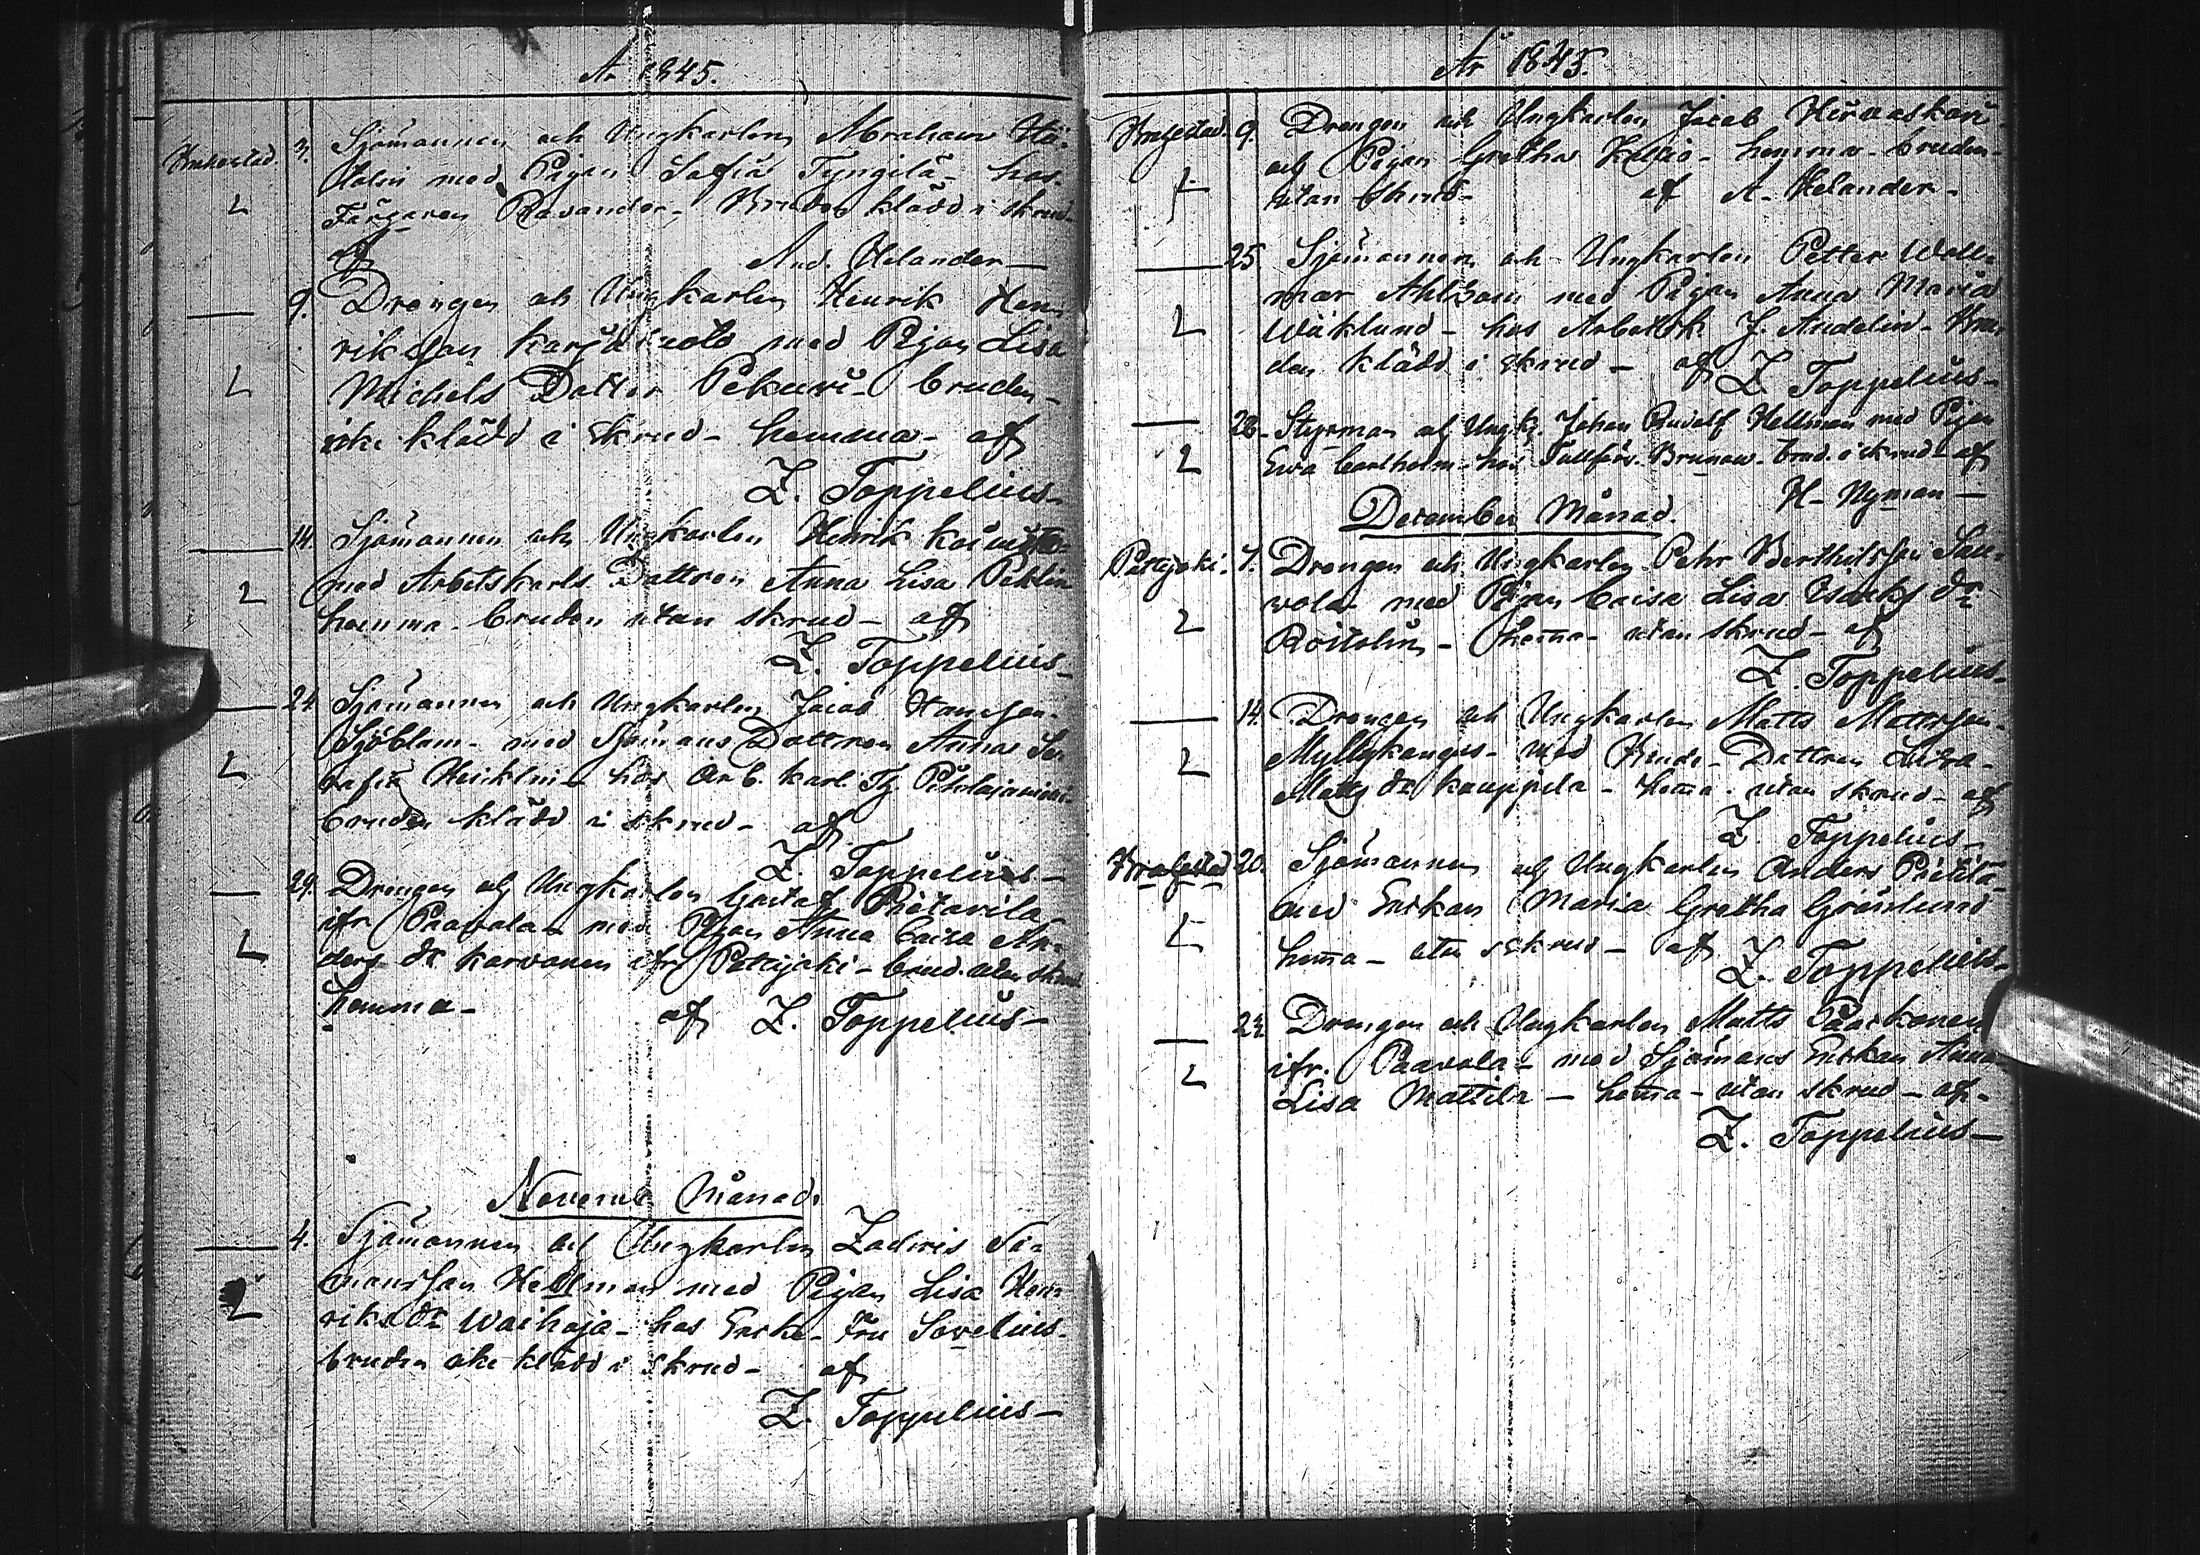 År 1845.
Brahestad. 3. Sjömannen och Ungkarlen Abraham
med Pigan Sofia Tyngilä - hos
Färgaren Ravander - Bruden klädd i skrud
af And. Helander -
9. Drengen och Ungkarlen Henrik Hen-
riksson med Pigan Lisa
Michels Dotter Pekuri - bruden
icke klädd i skrud - hemma - af
Z. Toppelius -
14. Sjömannen och Ungkarlen Henrik
med Arbetskarls Dottren Anna Lisa Pehlin
hemma - bruden utan skrud - af
Z. Toppelius -
24 Sjömannen och Ungkarlen Jacob Hansson
Sjöblom - med Sjömans Dottren Anna So-
fia - hos Arb. karl
bruden klädd i skrud - af
Z. Toppelius -
29. Drengen och Ungkarlen Gustaf Pietarila
ifr. Paavola med Pigan Anna Caisa An-
ders dr Karvonen ifr. Pattijoki - brud. utan skrud
hemma - af Z. Toppelius -
Novemb. Månad.
4. Sjömannen och Ungkarlen Zachris Si-
monsson Hedman med Pigan Lisa Hen-
riks dr Waihoja - hos Enke - Fru Sovelius -
bruden icke klädd i skrud - af
Z. Toppelius -
År 1845.
Brahestad. 9. Drengen och Ungkarlen Jacob Hirvaskari
och Pigan Gretha Kallio - hemma - bruden
utan skrud - af A. Helander -
25. Sjömannen och Ungkarlen Petter Wall-
mar Ahlbom med Pigan Anna Maria
Wiklund - hos Arbetsk. J. Andelin - Bru-
den klädd i skrud - af Z. Toppelius -
28. Styrman och Ungk. Johan Rudolf Hellman med Pigan
Eva Carlholm - hos Tullförv. Brunow. brud. i skrud af
H. Nyman -
December Månad.
Pattijoki. 7. Drengen och Ungkarlen Pehr Berthilsson Sau-
vola med Pigan Caisa Lisa Isacks dr
Roitolin - hema - utan skrud - af
Z. Toppelius -
14. Drengen och Ungkarlen Matts Mattsson
Myllykangas - med Bonde - Dottren Lisa
Matts dr Kauppila - hema - utan skrud - af
Z. Toppelius -
Brahestad 20. Sjömannen och Ungkarlen Anders Pietilä
med Enkan Maria Gretha Grönlund
hema - utan skrud - af Z. Toppelius -
24 Drengen och Ungkarlen Matts Paakonen
ifr. Paavola - med Sjömans Enkan Anna
Lisa Mattila - hema - utan skrud - af -
Z. Toppelius -